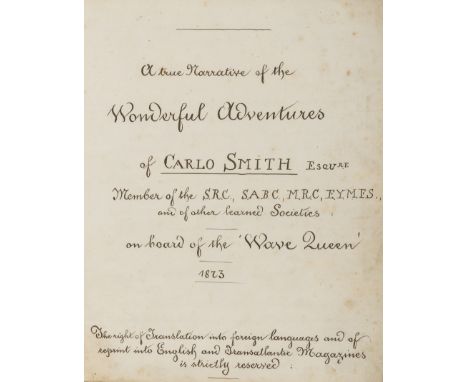 A true Narrative of the
Wonderful Adventures
of CARLO SMITH Esqure.
Member of the S.R.C., S.A.B.C, M.R.C, F.Y.M.F.S.,
and of other learned Societies
on board of the 'Wave Queen'
1873
The right of Translation into foreign languages and of
reprint into English and Transatlantic Magazines
is strictly reserved.